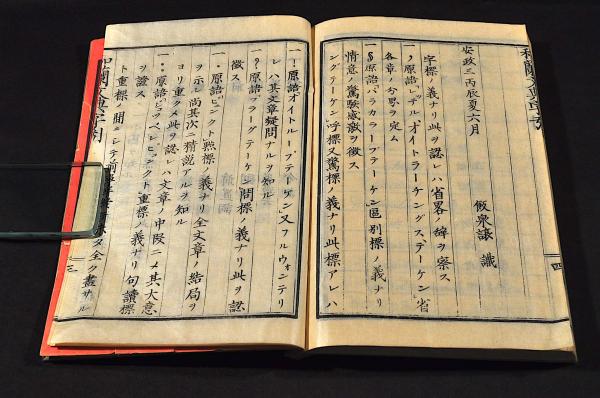 ト重標ノ間ニシテ ヲ全ク盡サル
ヲ證ス
一: 原語 ピュンクト重標ノ義ナリ句讀標
ヨリ重クメ此ヲ認レハ文章ノ中段ニメ其大意
ヲ示シ尚其次ニ精説アルヲ知ル
一. 原語ピュンクト點標ノ義ナリ全文章ノ結局ヲ
徴ス
一? 原語フラーグテーケン問標ノ義ナリ此ヲ認
レハ其文章疑問ナルヲ知ル
一! 原語オイトループテーケン又フルウォンテリ
ングテーケン呼標又驚標ノ義ナリ此標アレハ
情意ノ驚駭感激ヲ徴ス
一§ 原語パラガラーフテーケン區別標ノ義ナリ
各章ノ分界ヲ定ム
一, 原語レッテルオイトラーチングステーケン省
字標ノ義ナリ此ヲ認レハ省畧ノ辞ヲ察ス
安政三丙辰夏六月
譲 識
三
四